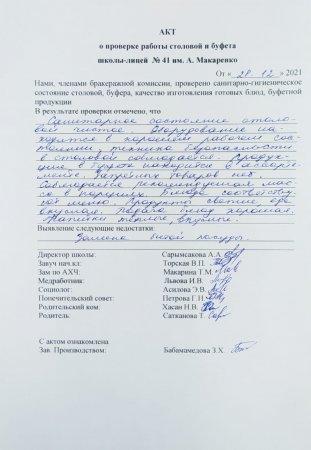 АКТ
о проверке работы столовой и буфета
школы-лицей № 41 им. А. Макаренко
От « 28 . 12 » 2021
Нами, членами бракеражной комиссии, проверено санитарно-гигиеническое
состояние столовой, буфета, качество изготовления готовых блюд, буфетной
продукции
В результате проверки отмечено, что
Санитарное состояние столо-
вой чистое. Оборудование на-
ходится в хорошем рабочем сос-
тоянии, техника безопасности
в столовой соблюдается. Продук-
ция в буфете находится в ассорти-
менте. Запретных товаров нет.
Соблюдается рекомендуемая мас-
са в порциях. Блюда соответству-
ют меню. Продукты свежие,
вкусные. Подача блюд хорошая.
Напитки теплые, вкусные.
Выявление следующие недостатки:
Замена битой посуды.
Директор школы: Сарымсакова А.А.
Завуч нач.кл: Торская В.П.
Зам по АХЧ: Макарина Т.М.
Медработник: Львова И.В.
Социолог: Асилова Э.В.
Попечительский совет: Петрова Г.Н.
Родительский ком: Хасан Н.В.
Родитель: Сатканова Т.
С актом ознакомлена
Зав. Производством: Бабамамедова З.Х.